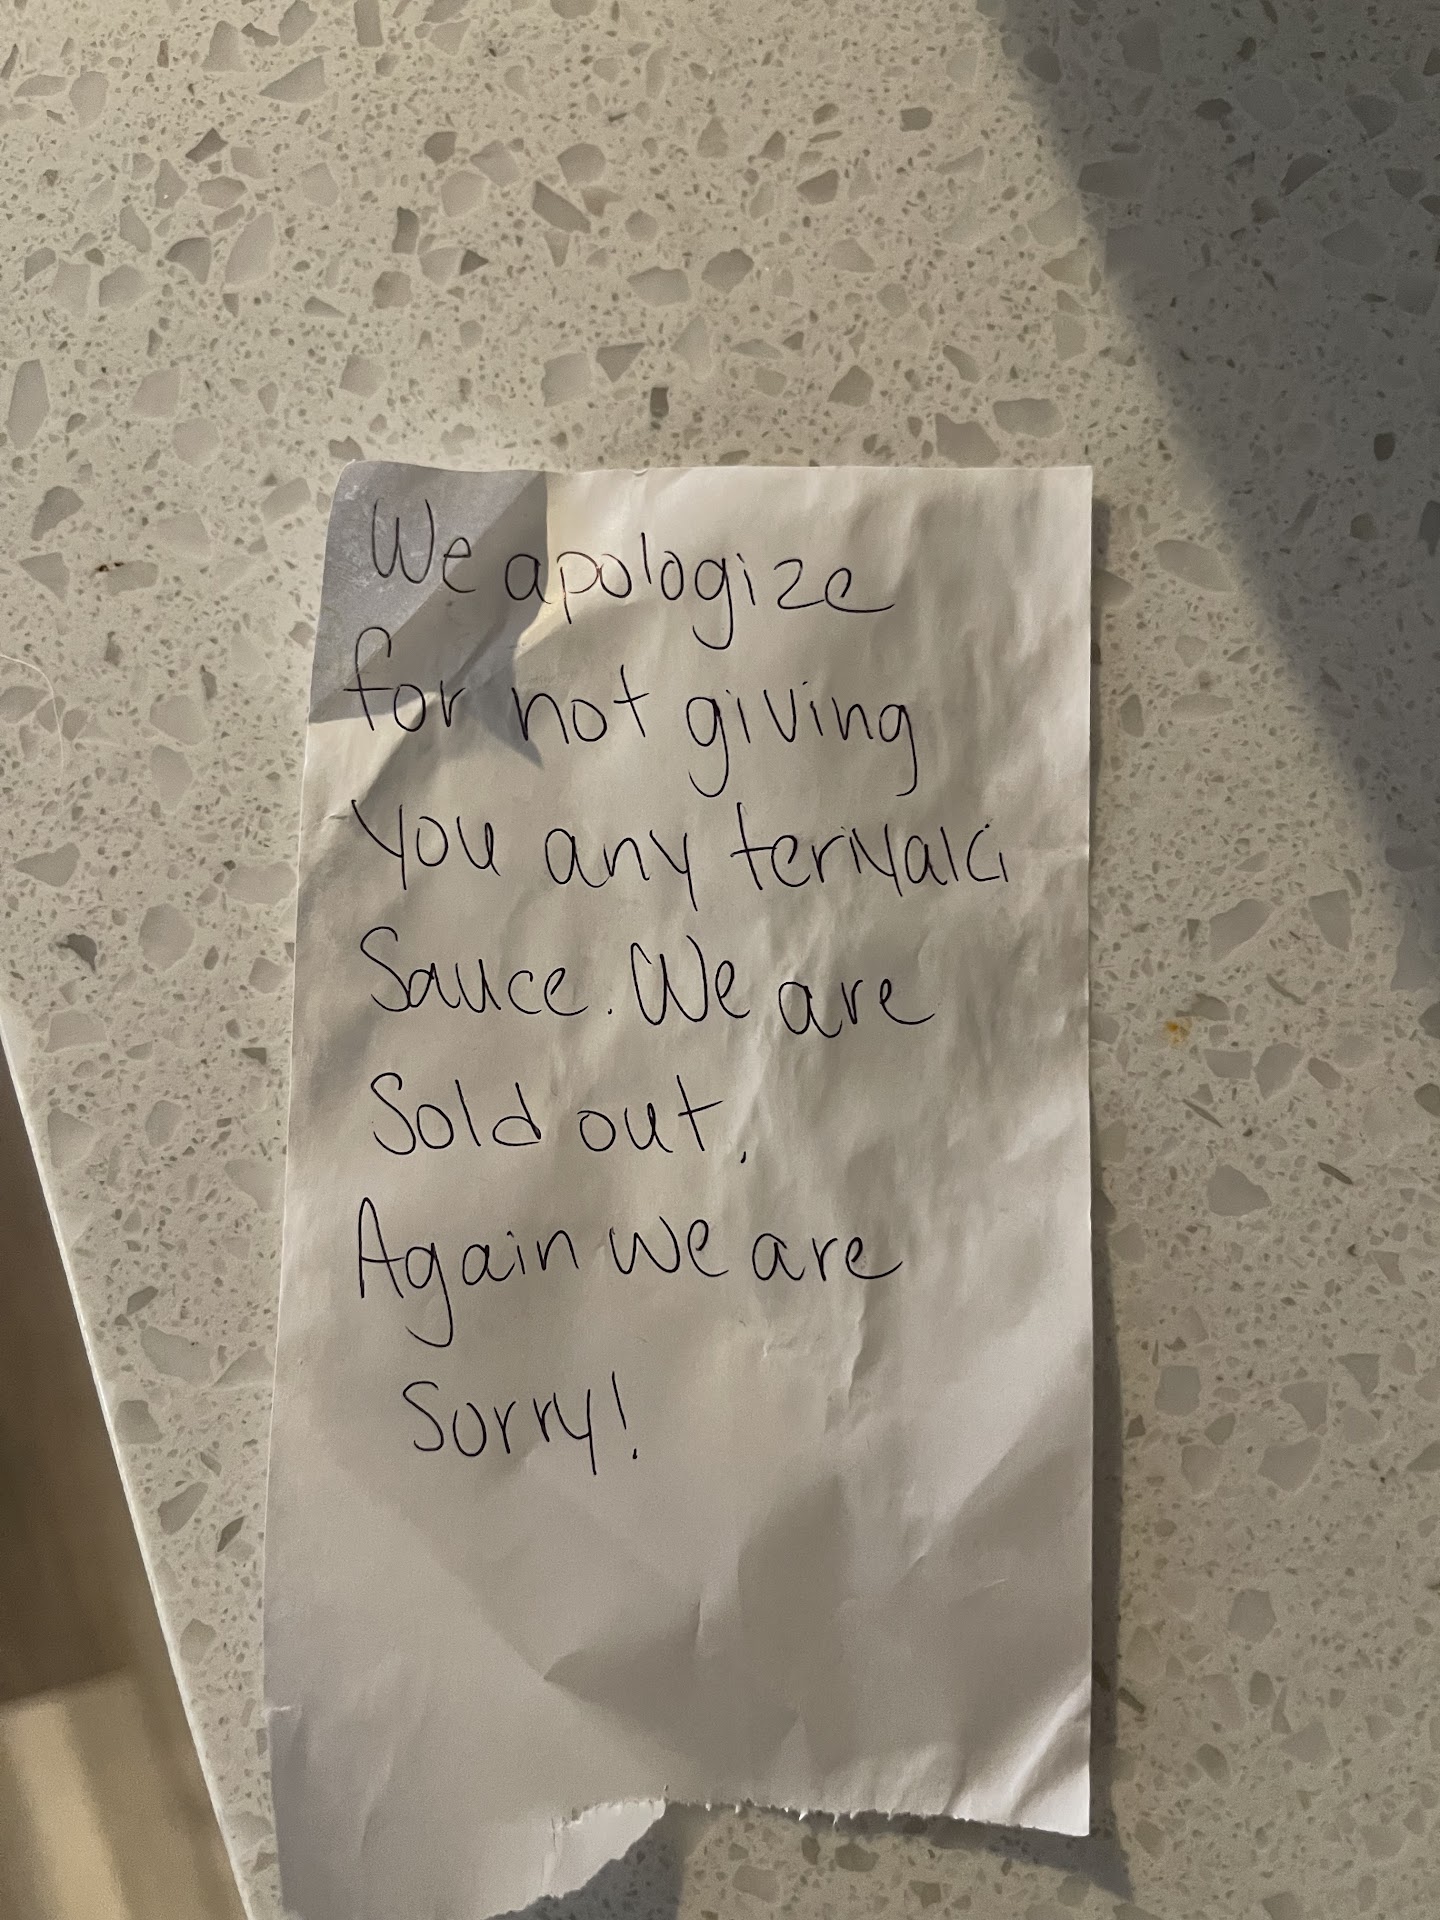 We apologize
for not giving
you any teriyaki
Sauce. We are
Sold out.
Again we are
Sorry!